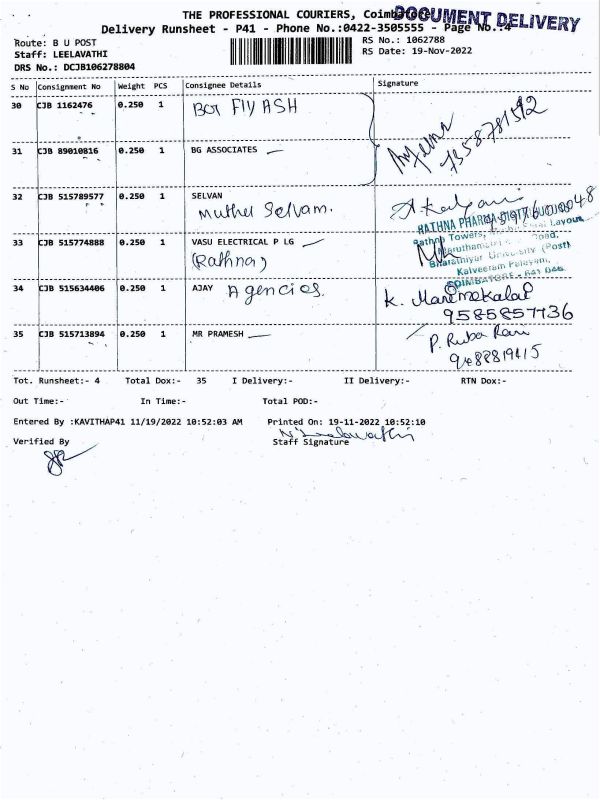 THE PROFESSIONAL COURIERS, Coimbatore
DOCUMENT DELIVERY
Delivery Runsheet - P41 - Phone No.:0422-3505555 - Page No.:4
Route: B U POST
RS No.: 1062788
Staff: LEELAVATHI
RS Date: 19-Nov-2022
DRS No.: DCJB106278804
S No Consignment No Weight PCS Consignee Details Signature
30 CJB 1162476 0.250 1 FlY ASH
7358781512
31 CJB 89010816 0.250 1 BG ASSOCIATES
32 CJB 515789577 0.250 1 SELVAN
Muthu Selvam.
RATHNA PHARMA DISTRIBUTORS
Rathna Towers, Layout
33 CJB 515774888 0.250 1 VASU ELECTRICAL P LG
(Rathna)
Road,
Bharathiyar University (Post)
Kalveeram Palayam,
COIMBATORE - 641 046
34 CJB 515634406 0.250 1 AJAY Agencies.
9585857736
35 CJB 515713894 0.250 1 MR PRAMESH
P. Ruba Rani
Tot. Runsheet:- 4 Total Dox:- 35 I Delivery:- II Delivery:- RTN Dox:-
Out Time:- In Time:- Total POD:-
Entered By :KAVITHAP41 11/19/2022 10:52:03 AM Printed On: 19-11-2022 10:52:10
Verified By Staff Signature